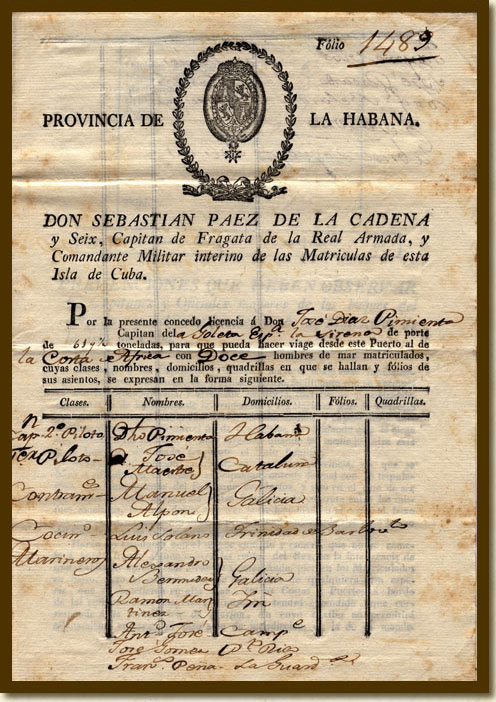 Fólio 1489
PROVINCIA DE LA HABANA.
DON SEBASTIAN PAEZ DE LA CADENA
y Seix, Capitan de Fragata de la Real Armada, y
Comandante Militar interino de las Matriculas de esta
Isla de Cuba.
Por la presente concedo licencia á Don José Diaz Pimienta
Capitan de la Goleta Espª la Sirena de porte
de 61 toneladas, para que pueda hacer viage desde este Puerto al de
la Costa Africa con Doce hombres de mar matriculados,
cuyas clases, nombres, domicilios, quadrillas en que se hallan y fólios de
sus asientos, se expresan en la forma siguiente.
Clases. Nombres. Domicilios. Fólios. Quadrillas.
Capn 2º Piloto Dho Pimienta Habana
Piloto José
Maestre
Contrame Manuel Galicia
Cocino Luis Solano Trinidad
Marineros Alexandro
Bermudez Galicia
Ramon Mar
tinez
Anto José Campe
José Gomez Pto Rico
Frano Pena La Guard